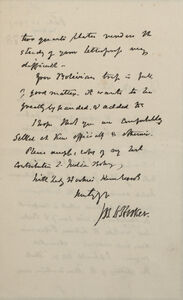 two quarto plates renders the
study of your letterpress very
difficult —
Your Bolivian trip is full
of good matter. It wants to be
greatly expanded, & added to
I hope that you are comfortably
settled at Kew officially & otherwise.
Please accept, copy of my last
contribution to Indian Botany,
With Lady Hookers Kind regards
Jos. D Hooker.